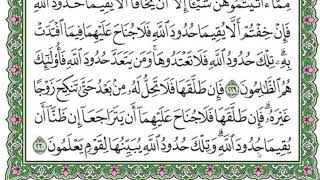 مِمَّآ ءَاتَيْتُمُوهُنَّ شَيْـًٔا إِلَّآ أَن يَخَافَآ أَلَّا يُقِيمَا حُدُودَ ٱللَّهِ
فَإِنْ خِفْتُمْ أَلَّا يُقِيمَا حُدُودَ ٱللَّهِ فَلَا جُنَاحَ عَلَيْهِمَا فِيمَا ٱفْتَدَتْ
بِهِۦ تِلْكَ حُدُودُ ٱللَّهِ فَلَا تَعْتَدُوهَا وَمَن يَتَعَدَّ حُدُودَ ٱللَّهِ فَأُو۟لَـٰٓئِكَ
هُمُ ٱلظَّـٰلِمُونَ ٢٢٩ فَإِن طَلَّقَهَا فَلَا تَحِلُّ لَهُۥ مِنۢ بَعْدُ حَتَّىٰ تَنكِحَ زَوْجًا
غَيْرَهُۥ فَإِن طَلَّقَهَا فَلَا جُنَاحَ عَلَيْهِمَآ أَن يَتَرَاجَعَآ إِن ظَنَّآ أَن
يُقِيمَا حُدُودَ ٱللَّهِ وَتِلْكَ حُدُودُ ٱللَّهِ يُبَيِّنُهَا لِقَوْمٍ يَعْلَمُونَ ٢٣٠